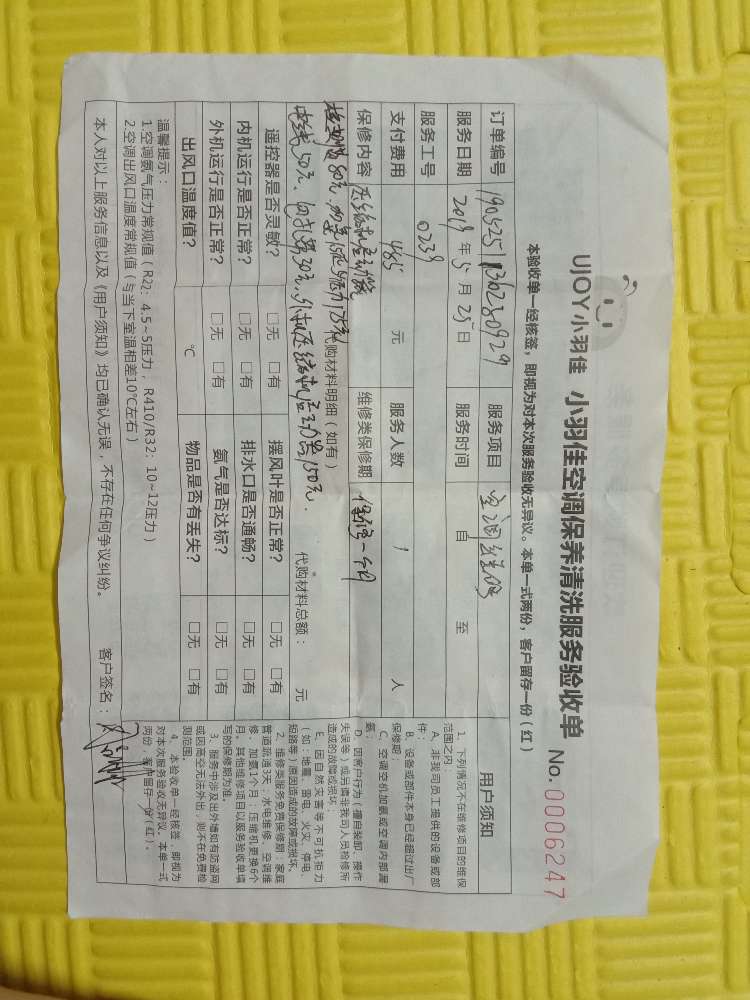 UJOY小羽佳 小羽佳空调保养清洗服务验收单 No. 0006247
本验收单一经核签，即视为对本次服务验收无异议。本单一式两份，客户留存一份（红）
订单编号 服务项目 空调维修 用户须知
服务日期 2019 年 5 月 25 日 服务时间 自 至
服务工号 0239
支付费用 485 元 服务人数 1 人
保修内容 压缩机启动器 维修类保修期 保修一个月
代购材料明细（如有）
80元
电线50元 30元 外机压缩机启动器150元.
代购材料总额： 元
遥控器是否灵敏？ □无 □有 摆风叶是否正常？ □无 □有
内机运行是否正常？ □无 □有 排水口是否通畅？ □无 □有
外机运行是否正常？ □无 □有 氨气是否达标？ □无 □有
出风口温度值？ ℃ 物品是否有丢失？ □无 □有
温馨提示：
1空调氨气压力常规值（R22：4.5~5压力；R410/R32：10~12压力）
2空调出风口温度常规值（与当下室温相差10℃左右）
本人对以上服务信息以及《用户须知》均已确认无误，不存在任何争议纠纷。 客户签名：
1、下列情况不在维修项目的维保
范围之内：
A、非我司员工提供的设备或部
件；
B、设备或部件本身已经超过出厂
保修期；
C、空调空机加氨或空调内部漏
氨；
D、因客户行为（擅自装卸、操作
失误等）或另请非我司人员检修所
造成的故障或损坏；
E、因自然灾害等不可抗拒力
（如：地震、雷电、火灾、停电、
短路等）原因造成的故障或损坏。
2、维修类服务免费保修期：家庭
管道疏通3天；水电维修、空调维
修、加氨1个月；压缩机更换6个
月。其他维修项目以服务验收单填
写的保修期为准。
3、服务中涉及出外墙如有防盗网
或因高空无法外出，则不在免费检
测范围。
4、本验收单一经核签，即视为
对本次服务验收无异议。本单一式
两份，客户留存一份（红）。